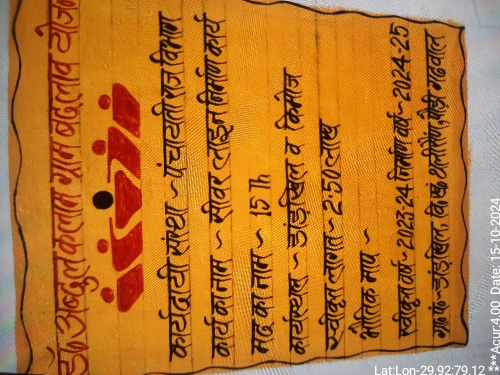 डॉ अब्दुल कलाम ग्राम बदलाव योजना
कार्यदायी संस्था ~ पंचायती राज विभाग
कार्य का नाम ~ सीवर लाइन निर्माण कार्य
मद का नाम ~ 15 Th
कार्यस्थल ~ डांडखिल व किमोज
स्वीकृत लागत ~ 2:50 लाख
भौतिक माप ~
स्वीकृत वर्ष ~ 2023-24 निर्माण वर्ष ~ 2024-25
ग्रा० पं० ~ डांडखिल, वि०ख० थलीसैंण, पौड़ी गढ़वाल
Lat:Lon-29.92:79.12
***Acur:4.00 Date: 15-10-2024